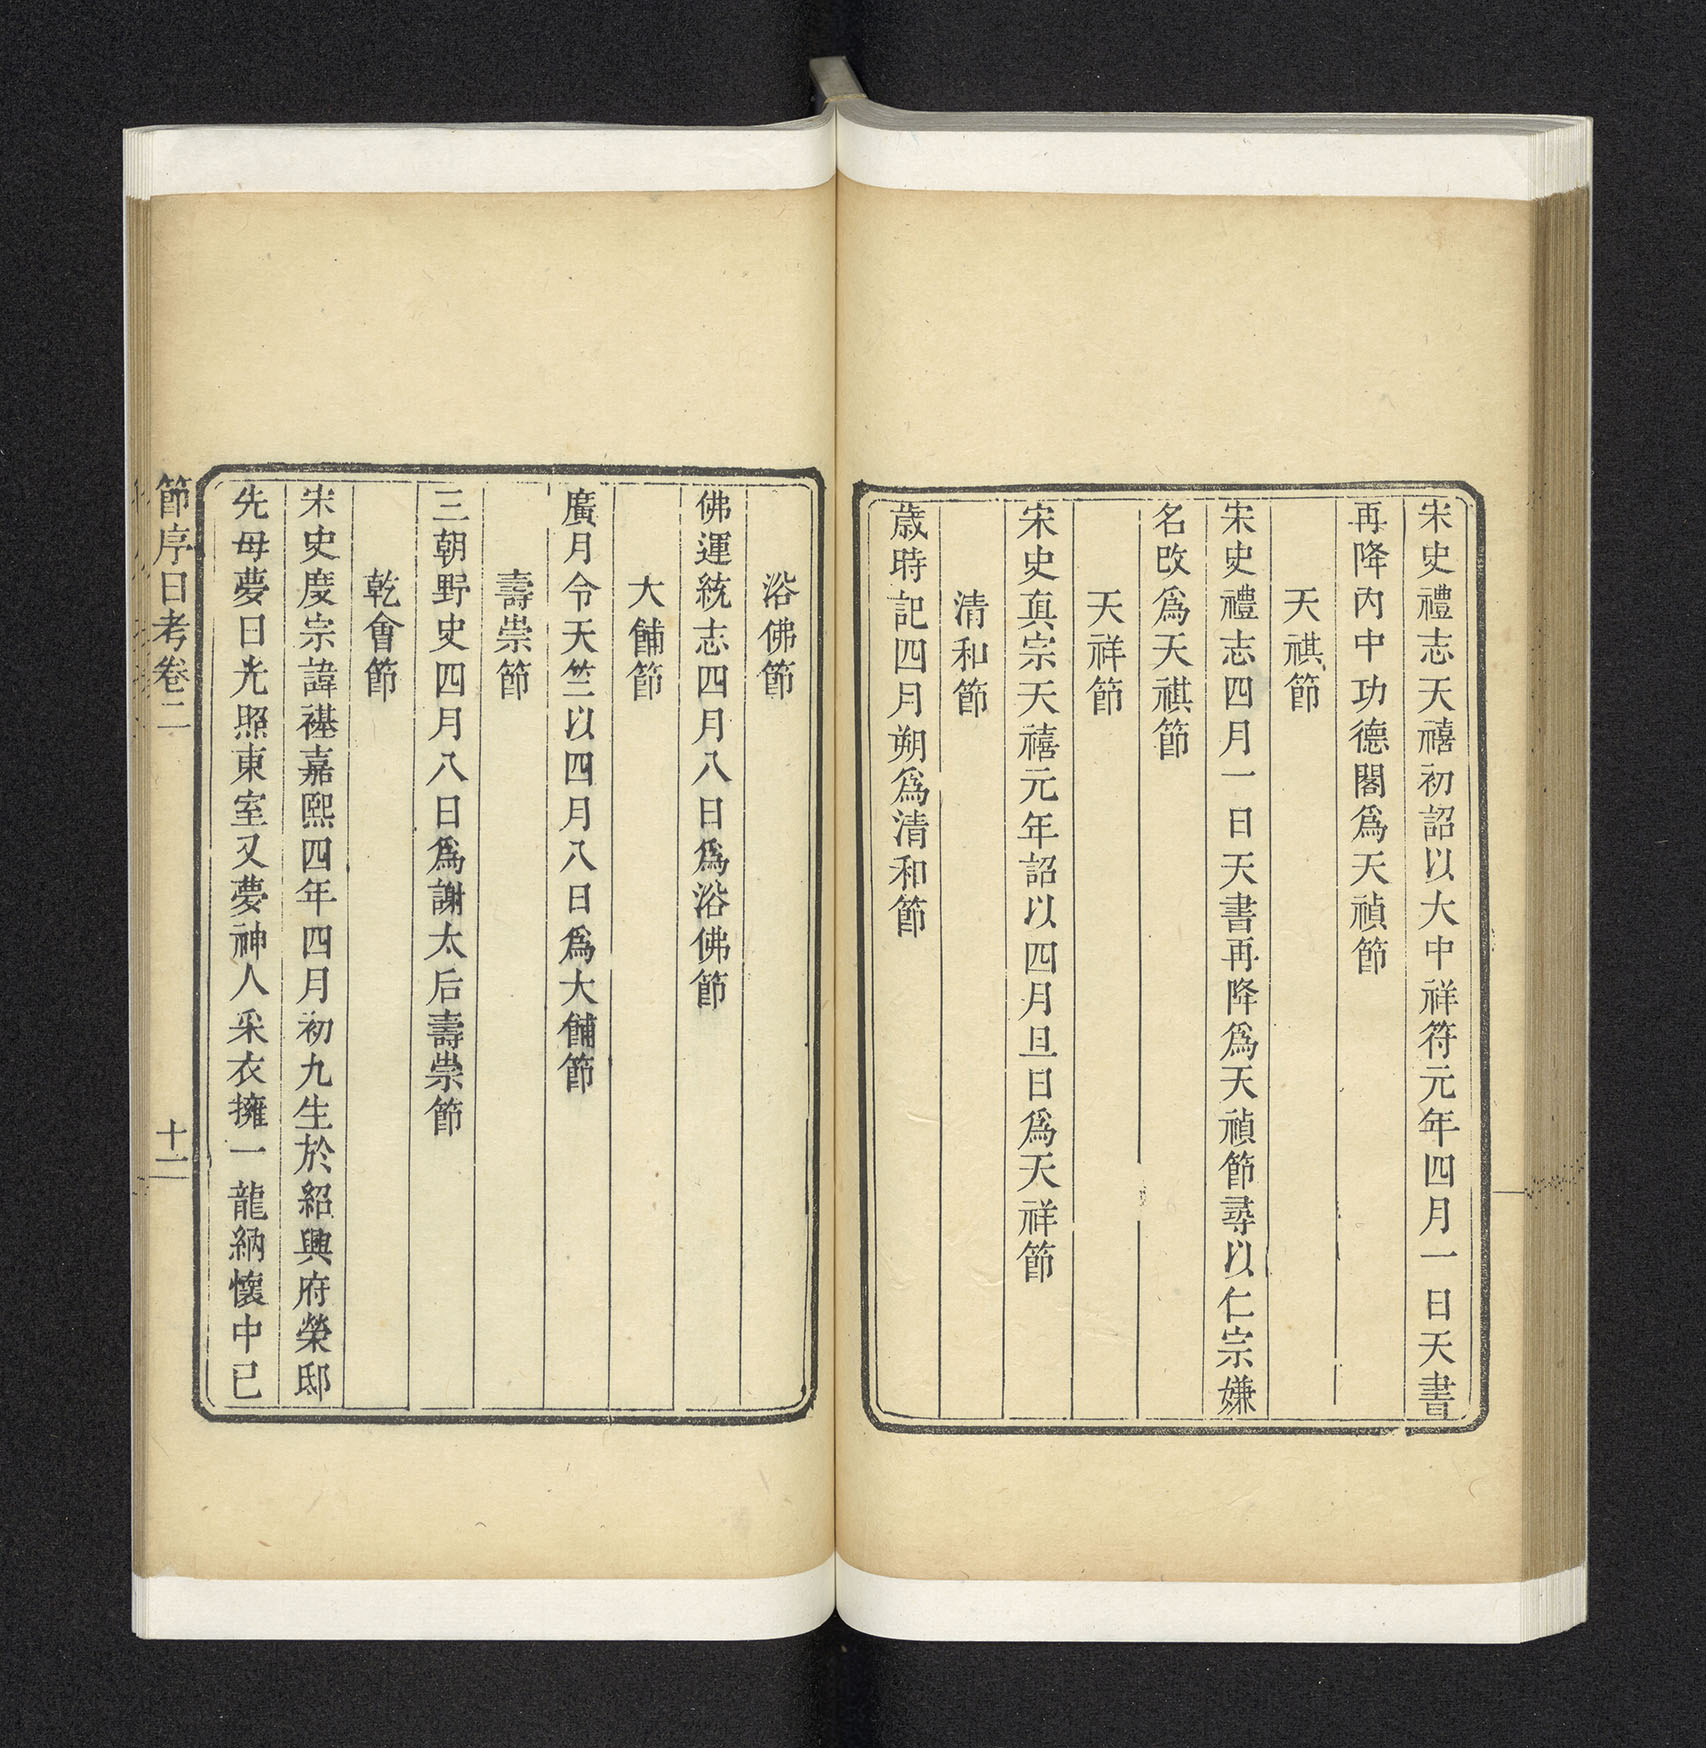 宋史禮志天禧初詔以大中祥符元年四月一日天書
再降內中功德閣爲天禎節
天祺節
宋史禮志四月一日天書再降爲天禎節尋以仁宗嫌
名改爲天祺節
天祥節
宋史真宗天禧元年詔以四月旦日爲天祥節
清和節
歲時記四月朔爲清和節
浴佛節
佛運統志四月八日爲浴佛節
大餔節
廣月令天竺以四月八日爲大餔節
壽崇節
三朝野史四月八日爲謝太后壽崇節
乾會節
宋史度宗諱禥嘉熙四年四月初九生於紹興府榮邸
先母夢日光照東室又夢神人采衣擁一龍納懷中已
節序日考卷二
十二